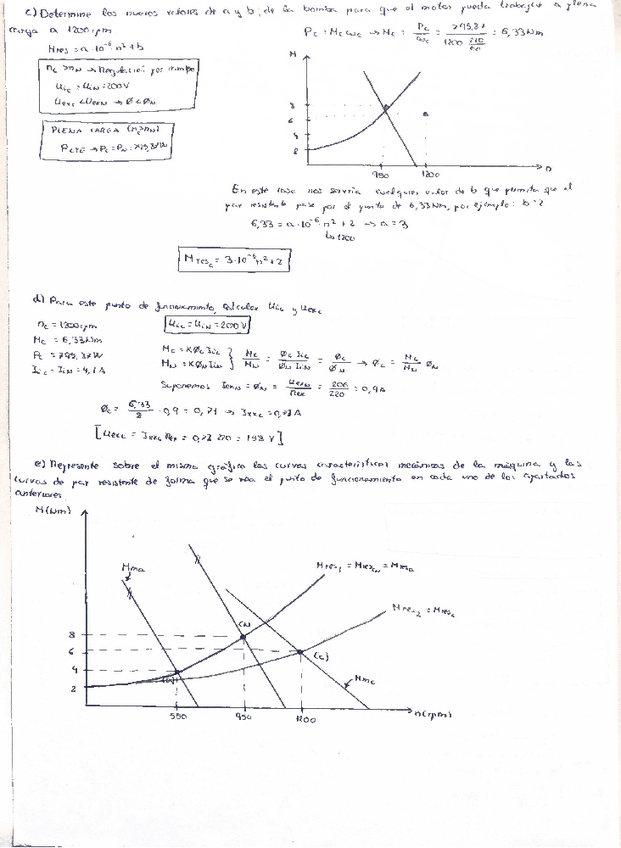 c) Determine los nuevos valores de a y b, de la bomba para que el motor pueda trabajar a plena
carga a 1200 rpm
Mres = a·10⁻⁶ n² + b
nc > nN → Regulación por campo
Uic = UiN = 200V
Uexc < UexN → Ø < ØN
PLENA CARGA
PCTE → Pc = PN =
Pc = Mc ωc → Mc = Pc/ωc = = 6,33 Nm
M
8
6
4
2
950 1200 n
En este caso nos serviría cualquier valor de b que permita que el
par resistente pase por el punto de 6,33 Nm, por ejemplo: b=2
6,33 = a·10⁻⁶·n² + 2 → a = 3
↳ 1200
Mresc = 3·10⁻⁶ n² + 2
d) Para este punto de funcionamiento, calcular Uic y Uexc
nc = 1200 rpm
Mc = 6,33 Nm
Iic = IiN = 4,1 A
Uic = UiN = 200 V
Mc = K Øc Iic
MN = K ØN IiN
Mc/MN = Øc Iic/ØN IiN = Øc/ØN → Øc = Mc/MN ØN
Suponemos IexN = ØN = UexN/Rex = /220 = 0,9A
Øc = 6,33/8 · 0,9 = 0,71 →
[Uexc = Iexc Rex = ]
e) Represente sobre el mismo gráfico las curvas características mecánicas de la máquina y las
curvas de par resistente de forma que se vea el punto de funcionamiento en cada uno de los apartados
anteriores
M(Nm)
Mma
Mres1 = MresN = Mresa
Mres2 = Mresc
(N)
(c)
Mmc
8
6
4
2
550 950 1200 n(rpm)